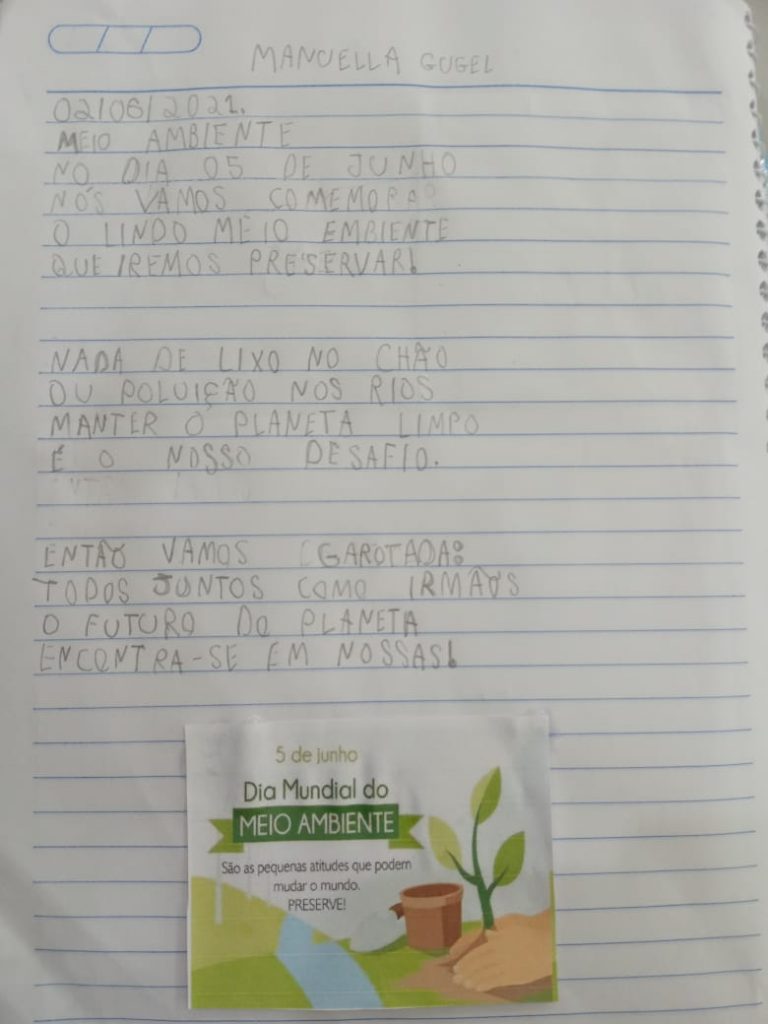 MANUELLA GUGEL
02/06/2021.
MEIO AMBIENTE
NO DIA 05 DE JUNHO
NÓS VAMOS COMEMORAR
O LINDO MEIO EMBIENTE
QUE IREMOS PRESERVAR!
NADA DE LIXO NO CHÃO
OU POLUIÇÃO NOS RIOS
MANTER O PLANETA LIMPO
É O NOSSO DESAFIO.
ENTÃO VAMOS GAROTADA:
TODOS JUNTOS COMO IRMÃOS
O FUTURO DO PLANETA
ENCONTRA-SE EM NOSSAS!
5 de junho
Dia Mundial do
MEIO AMBIENTE
São as pequenas atitudes que podem
mudar o mundo.
PRESERVE!